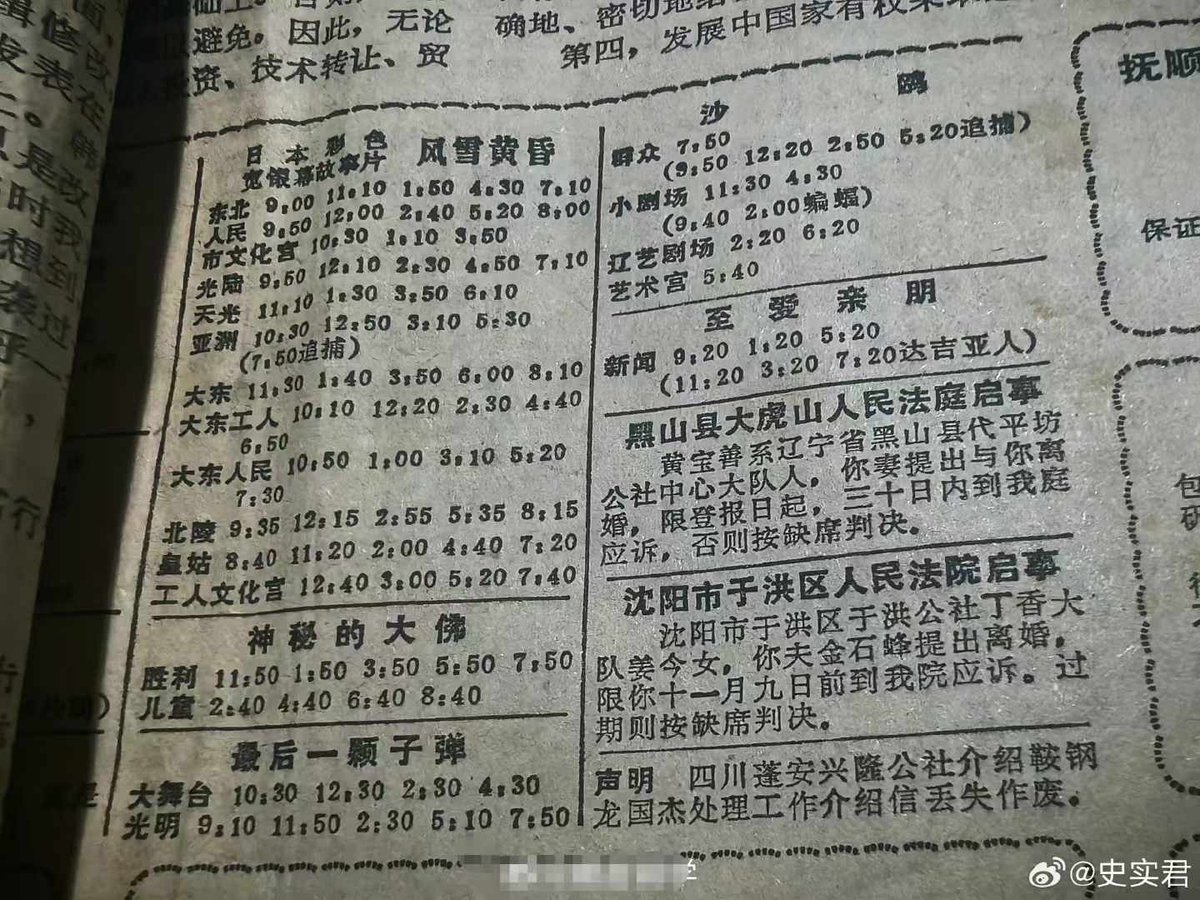 面，
修改
发表在
上。韩
只是改
时我
想到
袭过
乎一
，
行
避免。因此，无论
投资、技术转让、贸
确地、密切地
第四，发展中国家有权
日本彩色
宽银幕故事片 风雪黄昏
东北 9:00 11:10 1:50 4:30 7:10
人民 9:50 12:00 2:40 5:20 8:00
市文化宫 10:30 1:10 3:50
光陆 9:50 12:10 2:30 4:50 7:10
天光 11:10 1:30 3:50 6:10
亚洲 10:30 12:50 3:10 5:30
(7:50追捕)
大东 11:30 1:40 3:50 6:00 8:10
大东工人 10:10 12:20 2:30 4:40
6:50
大东人民 10:50 1:00 3:10 5:20
7:30
北陵 9:35 12:15 2:55 5:35 8:15
皇姑 8:40 11:20 2:00 4:40 7:20
工人文化宫 12:40 3:00 5:20 7:40
神秘的大佛
胜利 11:50 1:50 3:50 5:50 7:50
儿童 2:40 4:40 6:40 8:40
最后一颗子弹
大舞台 10:30 12:30 2:30 4:30
光明 9:10 11:50 2:30 5:10 7:50
沙鸥
群众 7:50
(9:50 12:20 2:50 5:20追捕)
小剧场 11:30 4:30
(9:40 2:00蝙蝠)
辽艺剧场 2:20 6:20
艺术宫 5:40
至爱亲朋
新闻 9:20 1:20 5:20
(11:20 3:20 7:20达吉亚人)
黑山县大虎山人民法庭启事
黄宝善系辽宁省黑山县代平坊
公社中心大队人，你妻提出与你离
婚，限登报日起，三十日内到我庭
应诉，否则按缺席判决。
沈阳市于洪区人民法院启事
沈阳市于洪区于洪公社丁香大
队姜今女，你夫金石蜂提出离婚，
限你十一月九日前到我院应诉。过
期则按缺席判决。
声明 四川蓬安兴隆公社介绍鞍钢
龙国杰处理工作介绍信丢失作废。
抚顺
保证
包
研
学
@史实君